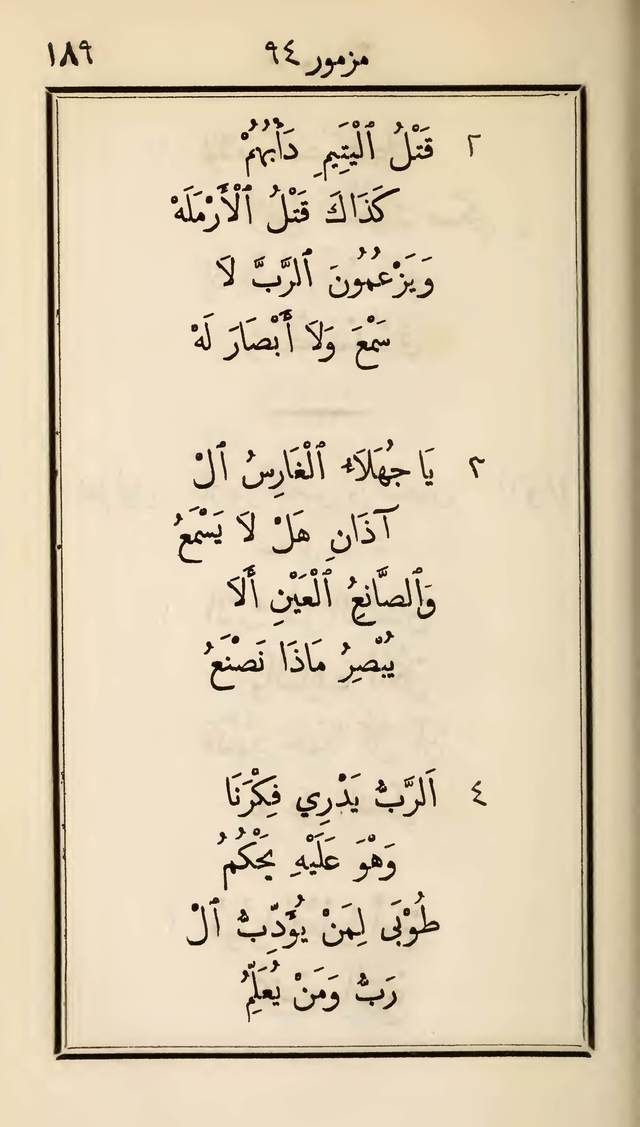 مزمور ٩٤ ١٨٩
٢ قَتْلُ ٱلْيَتِيمِ دَأْبُهُمْ
كَذَاكَ قَتْلُ ٱلْأَرْمَلَهْ
وَيَزْعُمُونَ ٱلرَّبَّ لَا
سَمْعَ وَلَا أَبْصَارَ لَهْ
٣ يَا جُهَلَاءُ ٱلْغَارِسُ ٱلْ
آذَانِ هَلْ لَا يَسْمَعُ
وَٱلصَّانِعُ ٱلْعَيْنِ أَلَا
يُبْصِرُ مَاذَا نَصْنَعُ
٤ اَلرَّبُّ يَدْرِي فِكْرَنَا
وَهْوَ عَلَيْهِ يَحْكُمُ
طُوْبَى لِمَنْ يُؤَدِّبُ ٱلْ
رَبُّ وَمَنْ يُعَلِّمُ